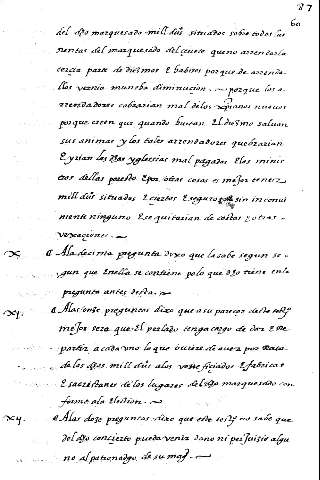 87
60
del dho marquesado mill dus situados sobre todas las
rentas del marquesado del cenete que no arrendarla
tercia parte de diezmos E habices porque de arrenda
llos vernia mucha diminucion porque los a
rrendadores cobrarian mal de los xpianos nuevos
porque creen que quando hurtan El diezmo salvan
sus animas y los tales arrendadores quebrarian
E yrian las dhas yglesias mal pagadas E los minis
tros dellas por esto E por otras cosas es mejor tener
mill dus situados E ciertos E seguros sin inconui
niente ninguno E se quitarian de costas y otras
vexaciones
X. A la decima pregunta dixo que la sabe segun se
gun que En ella se contiene por lo que dho tiene en la
pregunta antes desta
XI. A las onze preguntas dixo que a su parecer deste tos
mejor sera que El perlado tenga cargo de dar E Re
partir a cada uno lo que oviere de aver por Rata
de los dhos mill dus a los beneficiados E fabricas
E sacristanes de los lugares del dho marquesado con
forme a la Election
XII. A las doze preguntas dixo que este to no sabe que
del dho concierto pueda venir dano ni perjuizio algu
no al patronadgo de su mag